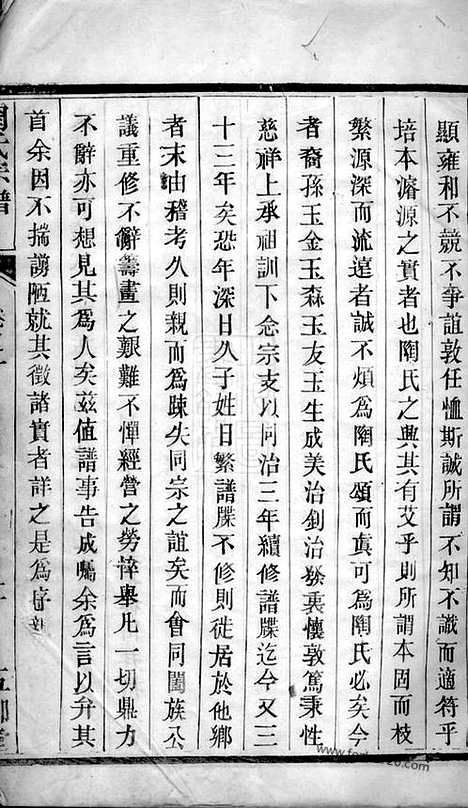 顯雍和不競不爭誼敦任恤斯誠所謂不知不識而適符乎
培本濬源之實者也陶氏之興其有艾乎則所謂本固而枝
繁源深而流遠者誠不煩爲陶氏頌而眞可爲陶氏必矣今
者裔孫玉金玉森玉友玉生成美治釗治燊裏懷敦篤秉性
慈祥上承祖訓下念宗支以同治三年續修譜牒迄今又三
十三年矣恐年深日久子姓日繁譜牒不修則徙居於他鄉
者末由稽考久則親而爲踈失同宗之誼矣而會同闔族公
議重修不辭籌畫之艱難不憚經營之勞悴舉凡一切鼎力
不辭亦可想見其爲人矣茲值譜事告成囑余爲言以弁其
首余因不揣謭陋就其徵諸實者詳之是爲序
氏宗譜